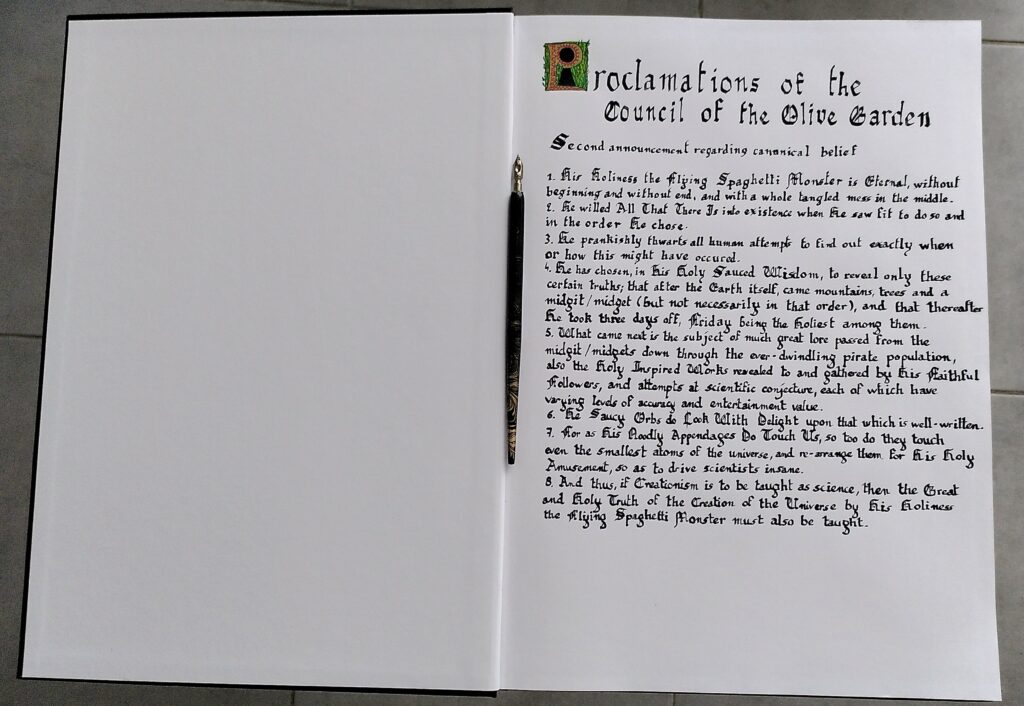 Proclamations of the
Council of the Olive Garden
Second announcement regarding canonical belief
1. His Holiness the Flying Spaghetti Monster is Eternal, without
beginning and without end, and with a whole tangled mess in the middle.
2. He willed All That There Is into existence when He saw fit to do so and
in the order He chose.
3. He prankishly thwarts all human attempts to find out exactly when
or how this might have occured.
4. He has chosen, in His Holy Sauced Wisdom, to reveal only these
certain truths; that after the Earth itself, came mountains, trees and a
midgit/midget (but not necessarily in that order), and that thereafter
He took three days off, Friday being the Holiest among them.
5. What came next is the subject of much great lore passed from the
midgit/midgets down through the ever-dwindling pirate population,
also the Holy Inspired Works revealed to and gathered by His Faithful
Followers, and attempts at scientific conjecture, each of which have
varying levels of accuracy and entertainment value.
6. He Saucy Orbs do Look With Delight upon that which is well-written.
7. For as His Noodly Appendages Do Touch Us, so too do they touch
even the smallest atoms of the universe, and re-arrange them for His Holy
Amusement, so as to drive scientists insane.
8. And thus, if Creationism is to be taught as science, then the Great
and Holy Truth of the Creation of the Universe by His Holiness
the Flying Spaghetti Monster must also be taught.